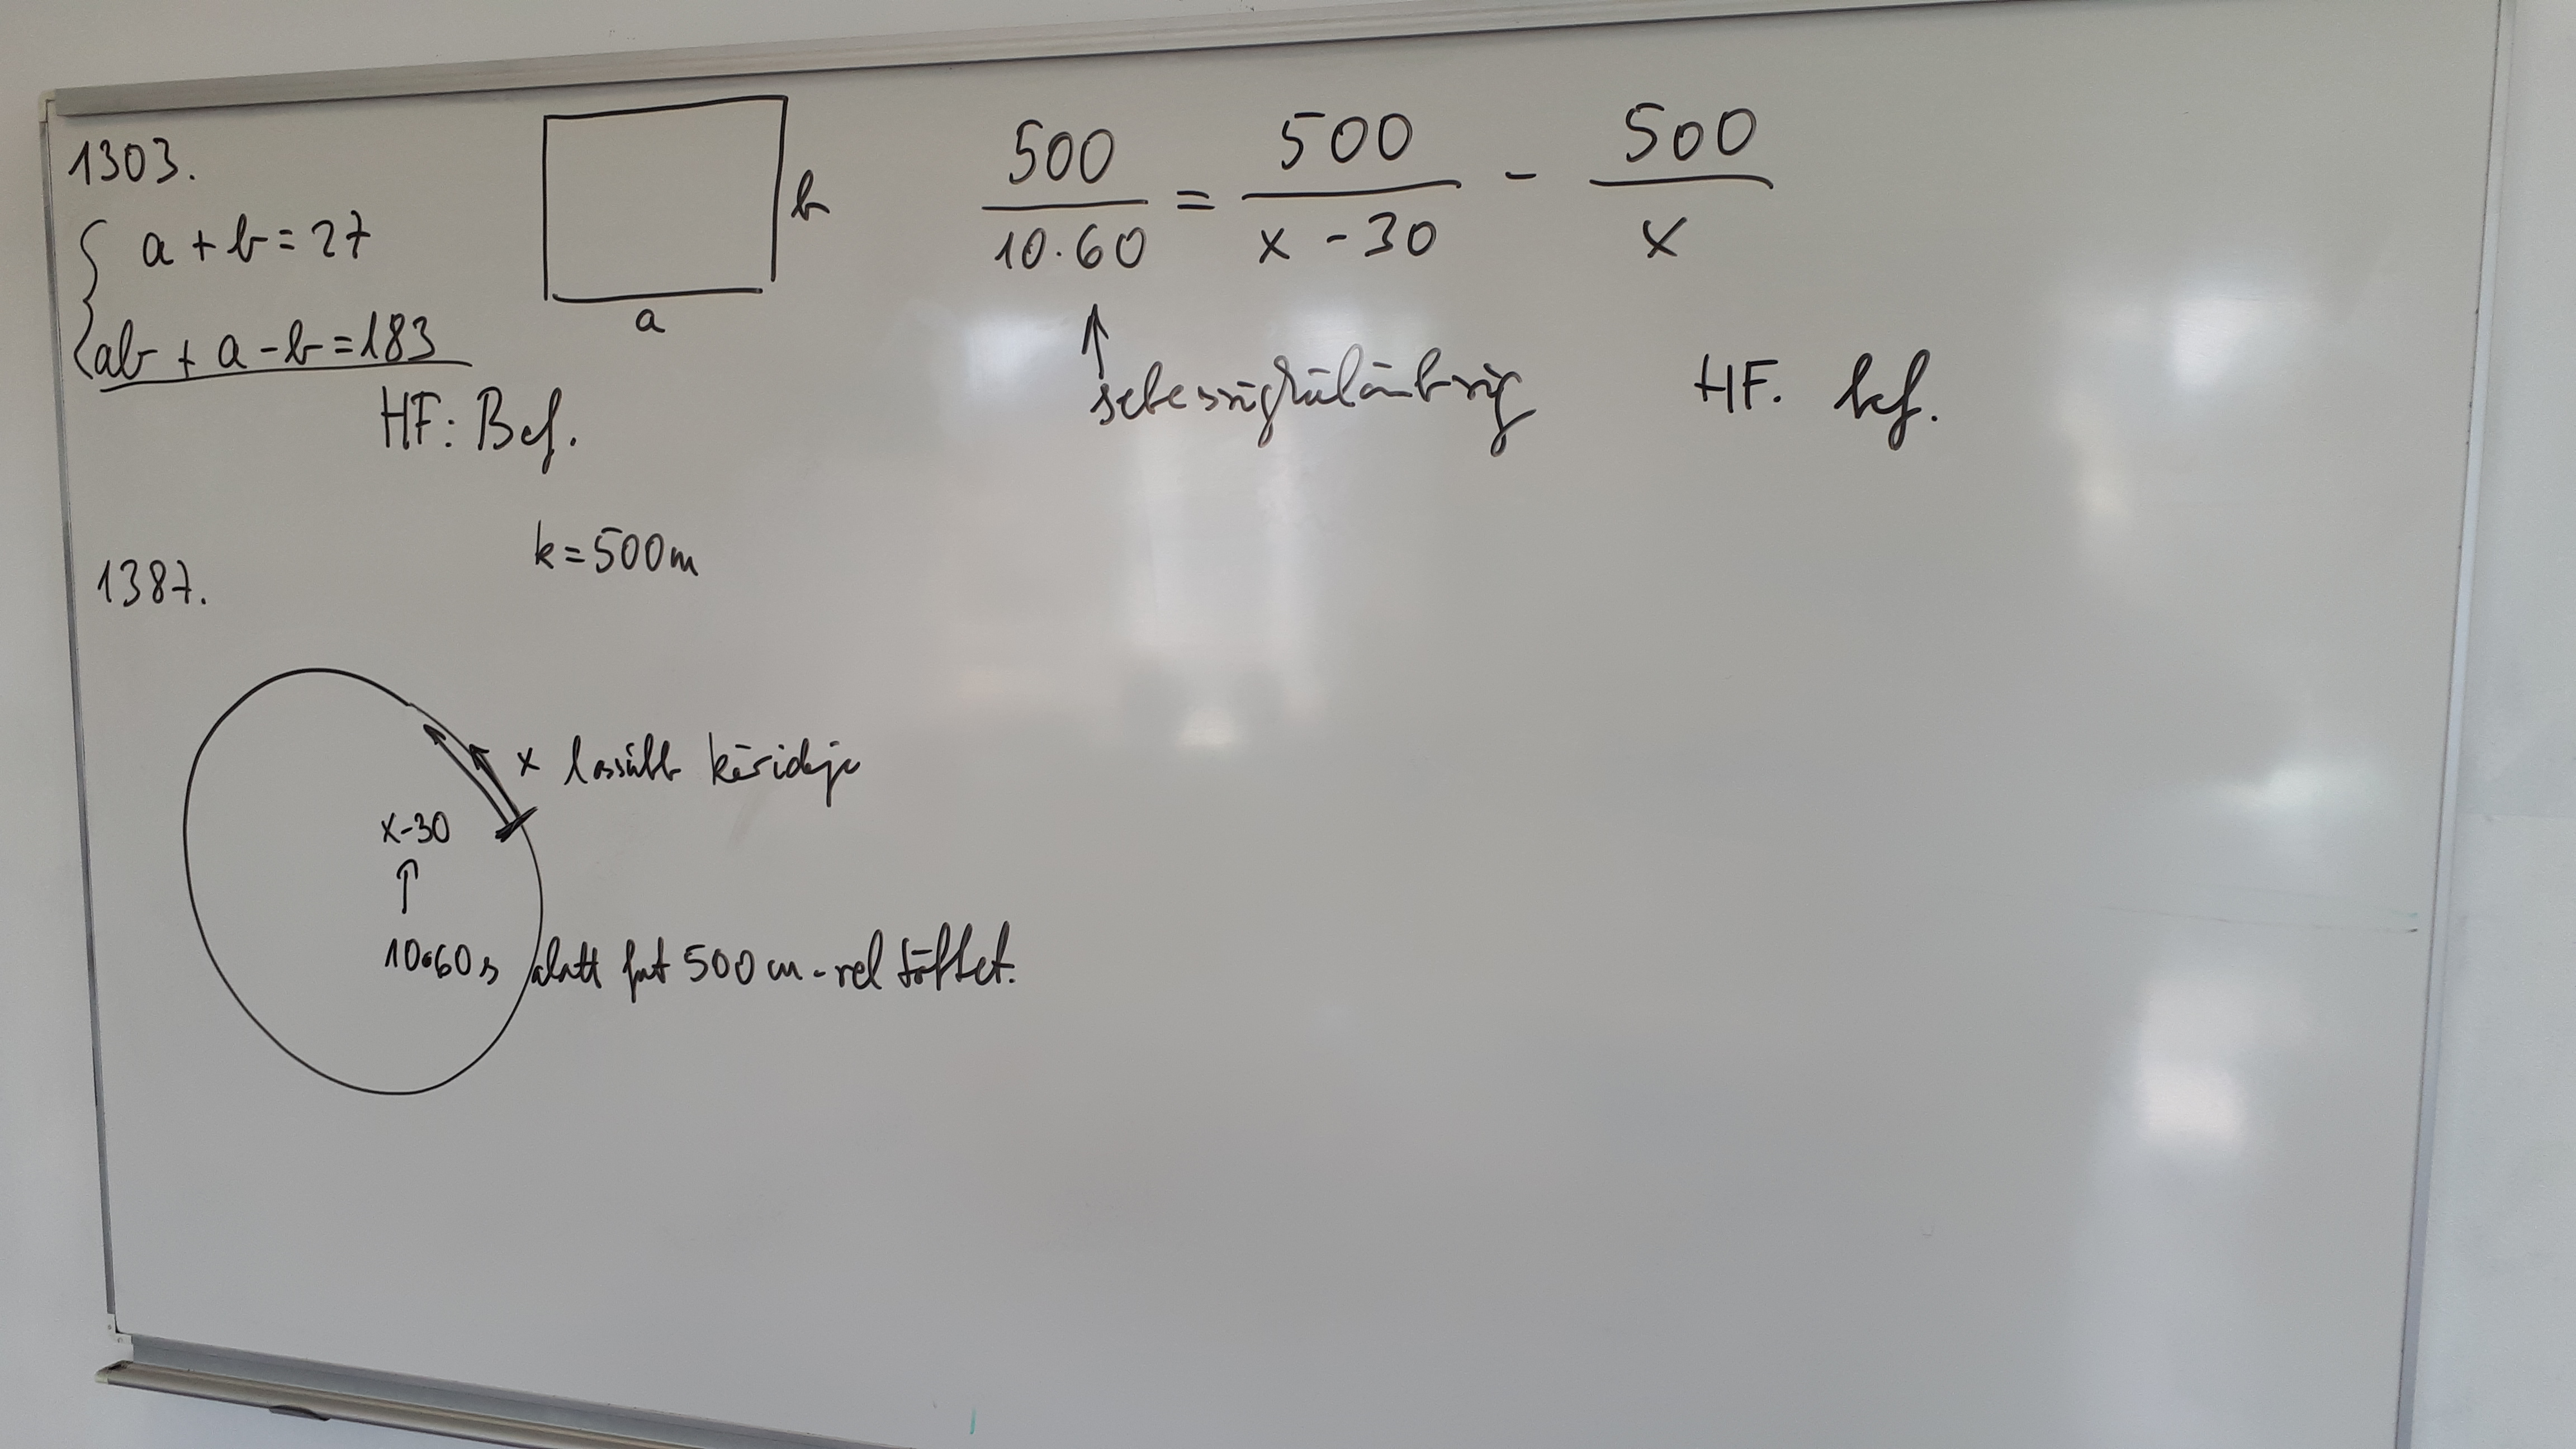 1303.
a + b = 27
ab + a - b = 183
HF: Bef.
b
a
500/10·60 = 500/x-30 - 500/x
↑
sebességkülönbség
HF. bef.
1387.
k = 500m
x lassúbb körideje
x-30
↑
10·60 s alatt fut 500 m-rel többet.